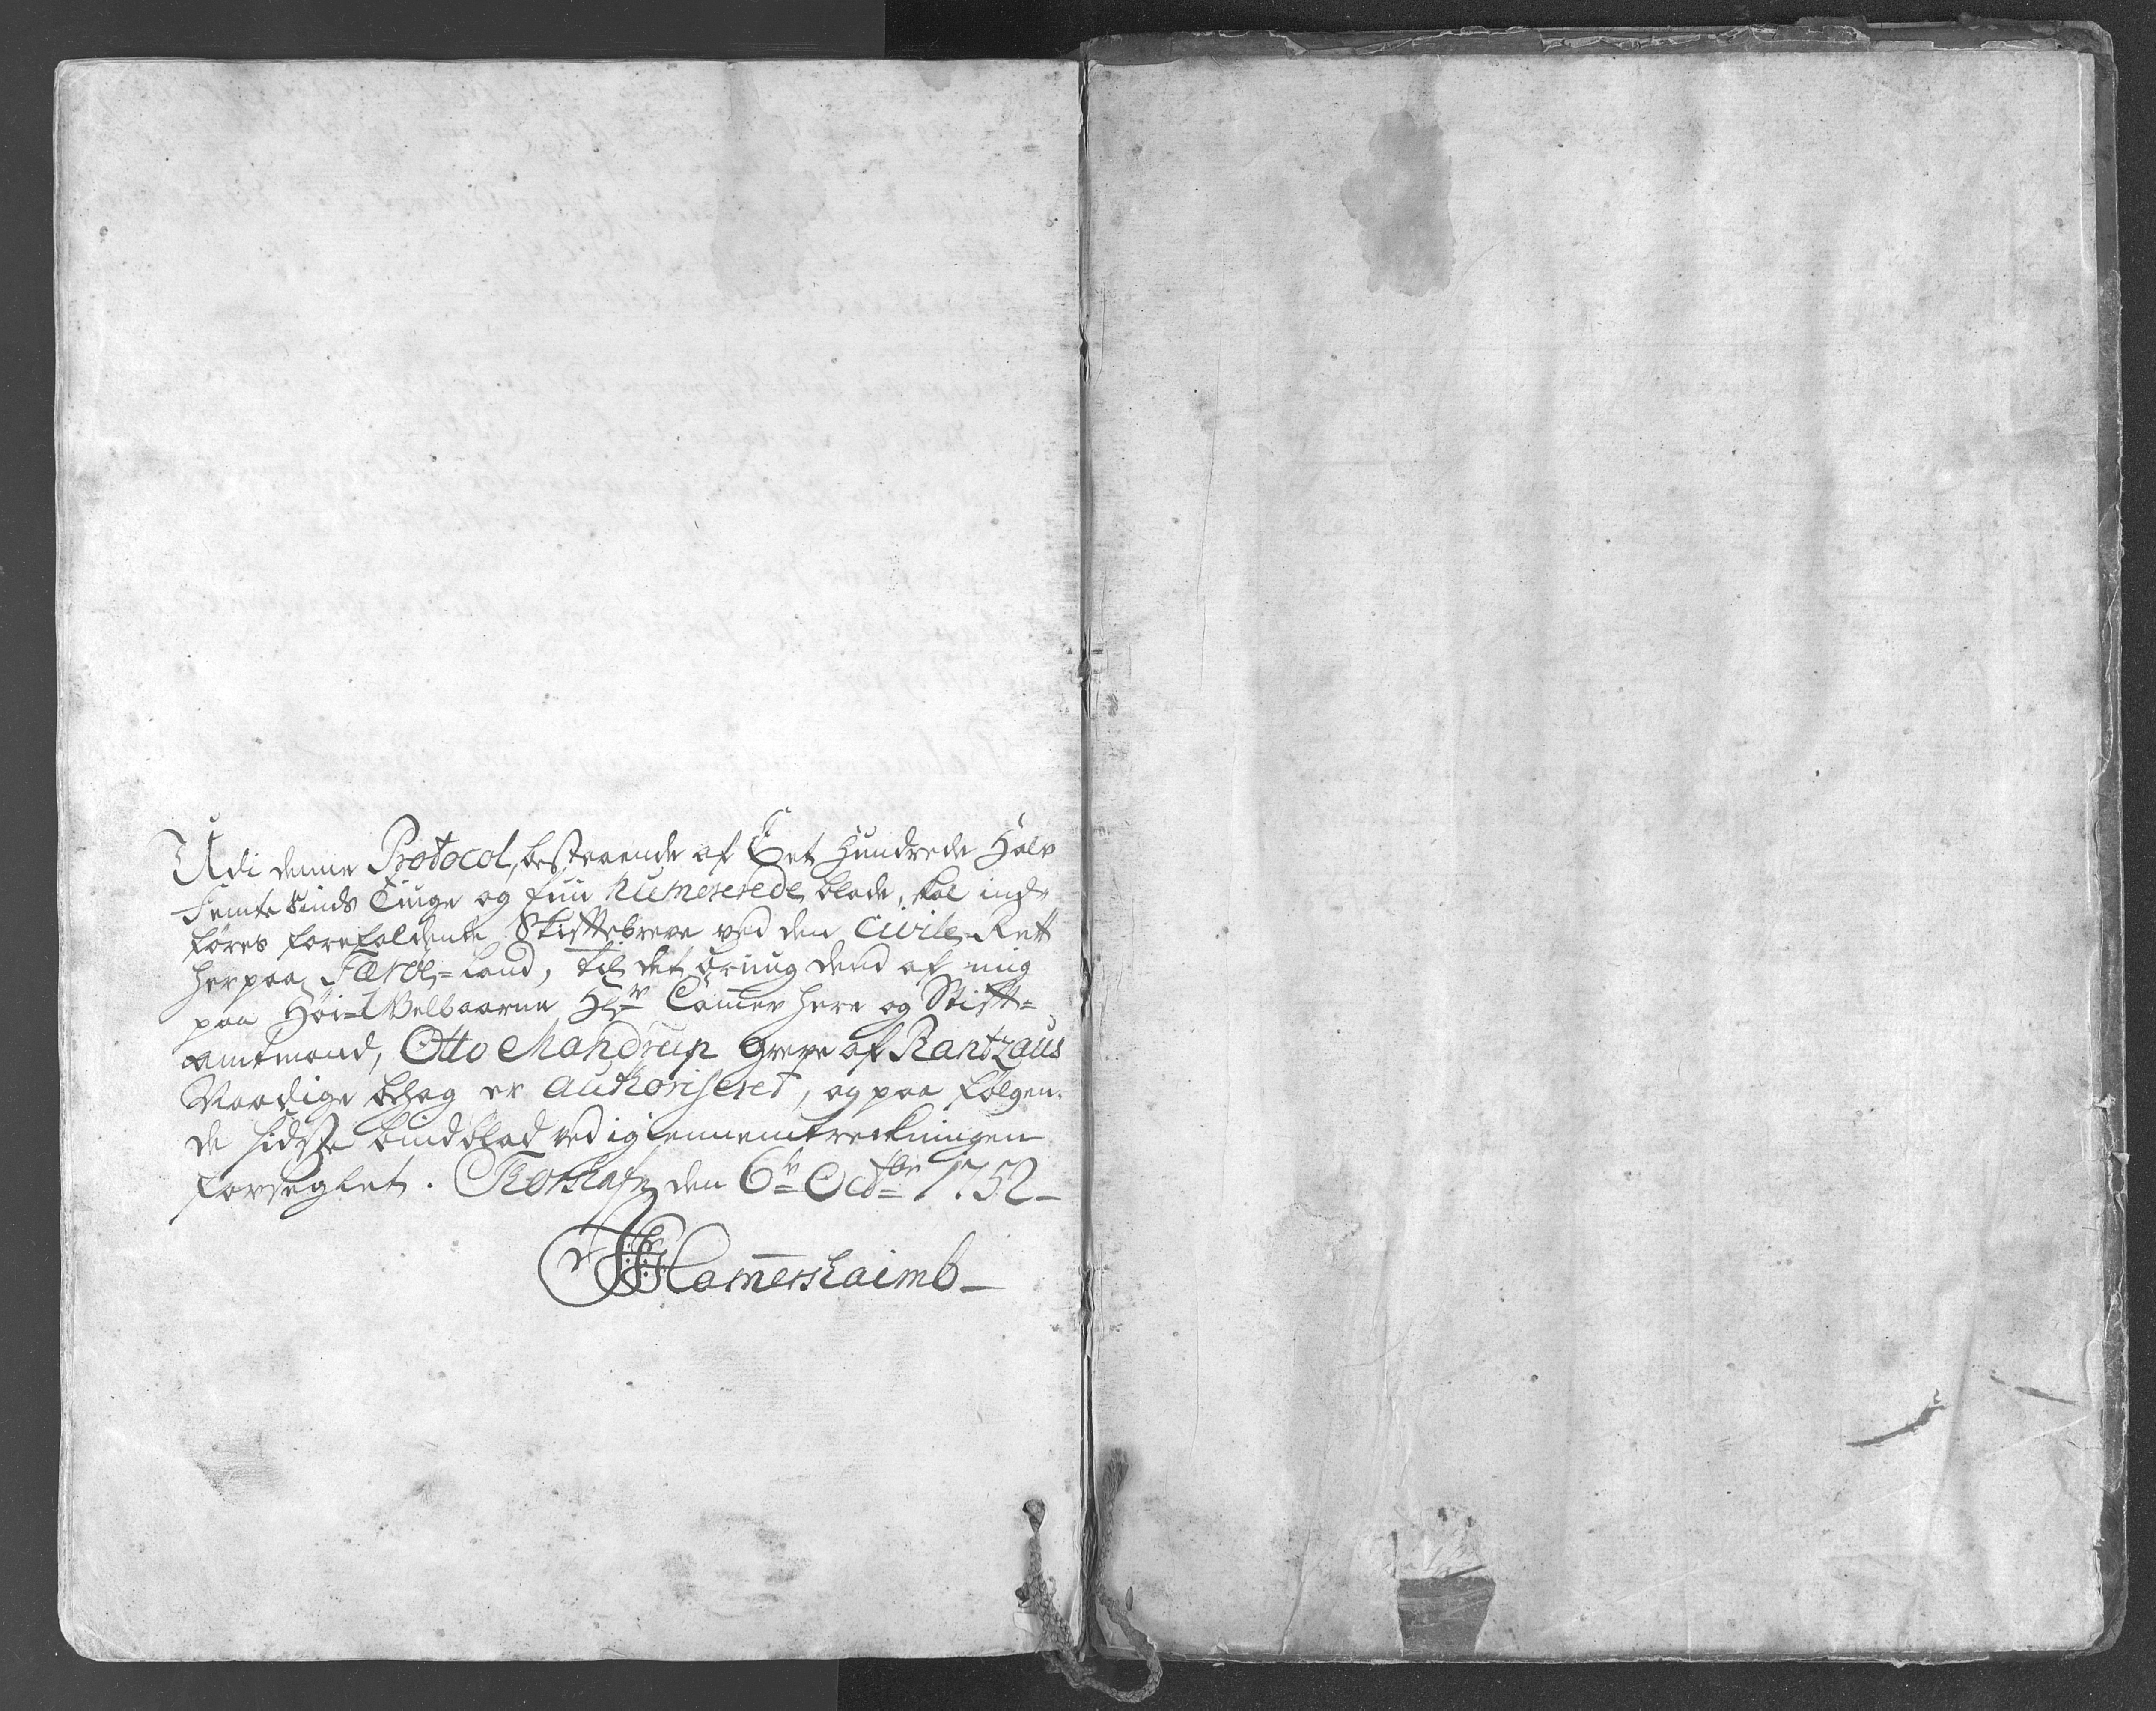 Udi denne Protocol, bestaaende af Eet Hundrede Halv
Femte Sinds Tiuge og fiin Numererede blade, skal ind-
føres forefaldende Skifftebreve ved den Civile Rett
her paa Færöe=Land, til det
paa Høi=Welbaarne Hr Camer Herre og Stifft=
amtmand, Otto Mandrup Greve af Rantzaus
Naadige behag er Authoriseret, og paa følgen-
de sidste bindblad ved igiennemtreckningen
forseglet. Thorshafn den 6te Octbr 1752
Hamershaimb